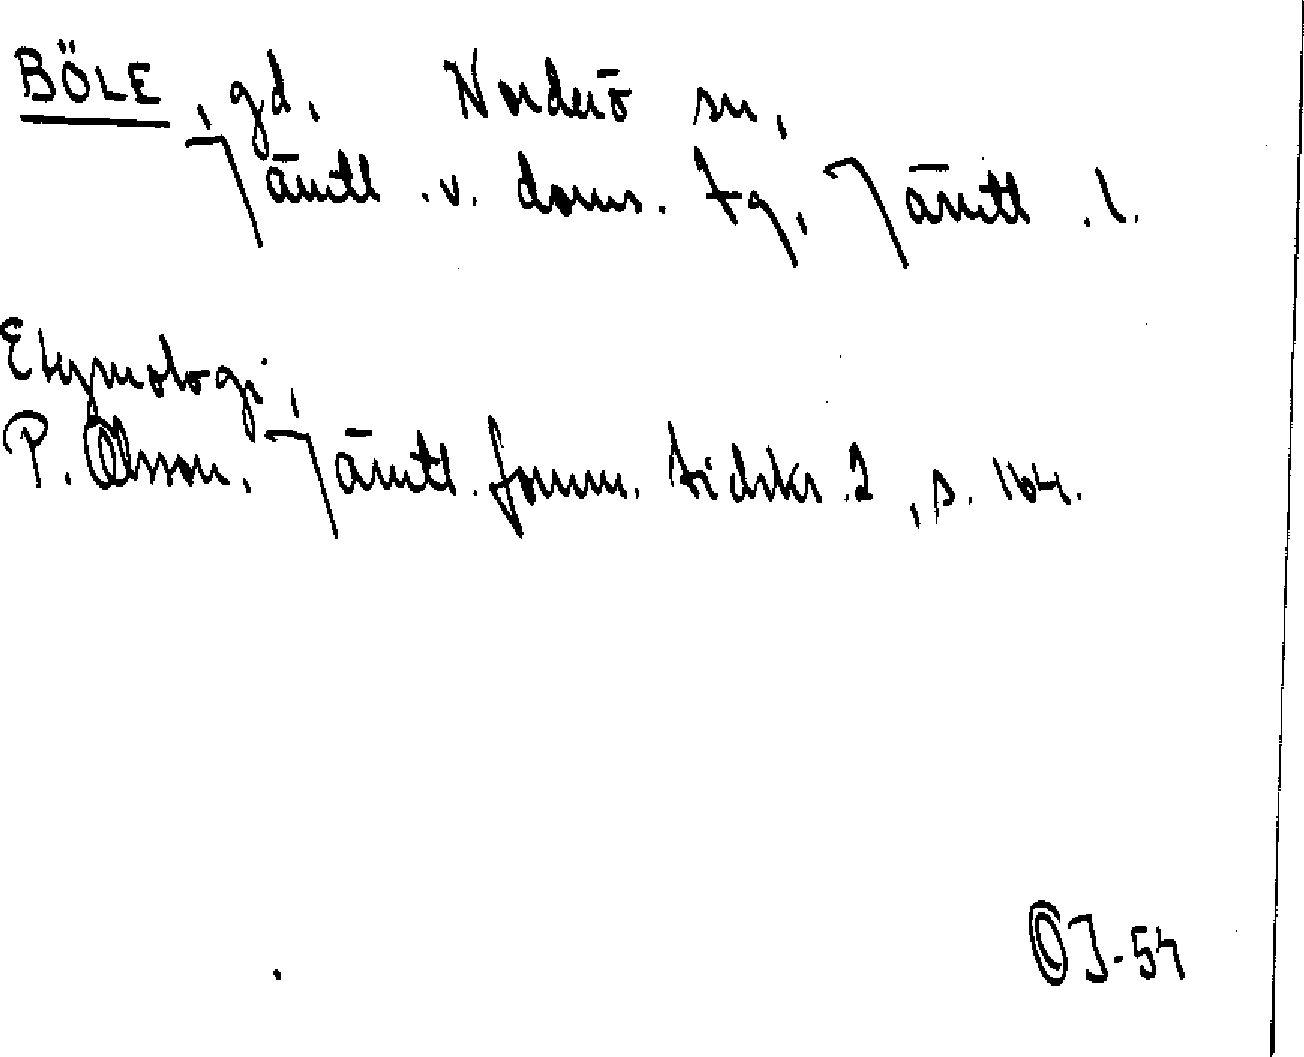 BÖLE, gd. Norderö sn,
Jämtl. v. doms. tg, Jämtl. l.
Etymologi,
P. Olsson, Jämtl. fornm. tidskr. 2, s. 164.
OJ-54